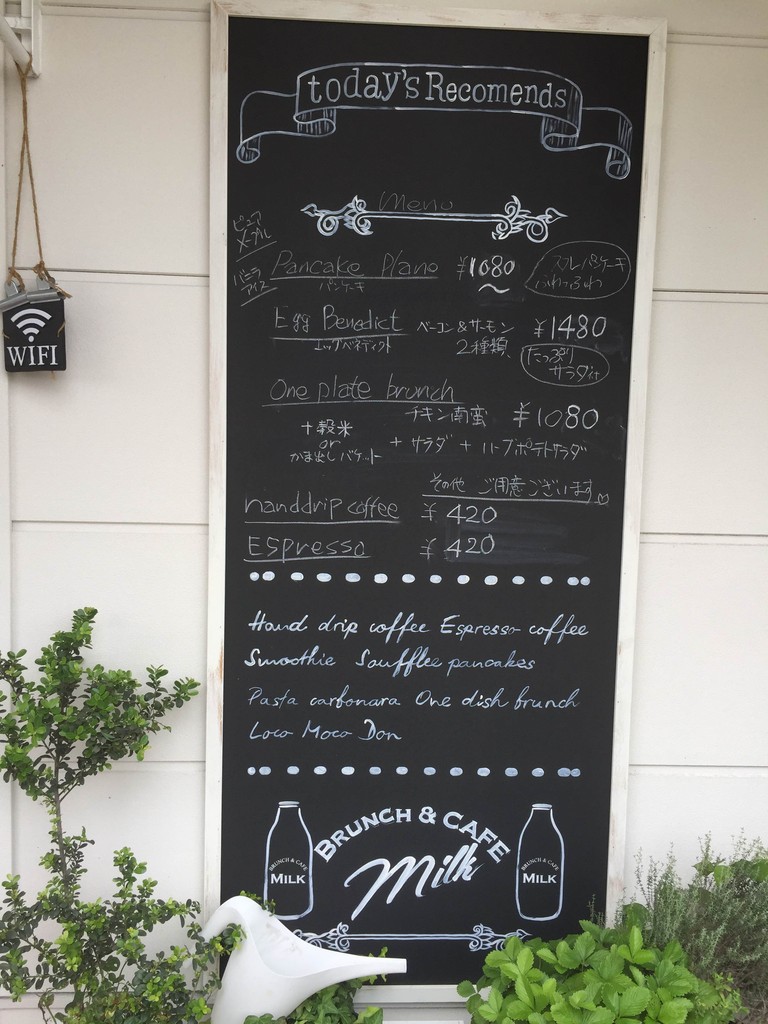 today's Recomends
Menu
ピュア
メープル
バニラ
アイス
Pancake Plane ¥1080
パンケーキ
スフレパンケーキ
ふわっふわ
Egg Benedict ベーコン&サーモン ¥1480
エッグベネディクト 2種類、
たっぷり
サラダ付
One plate brunch
チキン南蛮 ¥1080
十穀米
or
かま出しバケット
+ サラダ + ハーブポテトサラダ
その他 ご用意ございます♡
handdrip coffee ¥420
Espresso ¥420
Hand drip coffee Espresso coffee
Smoothie Soufflee pancakes
Pasta carbonara One dish brunch
Loco Moco Don
BRUNCH & CAFE
Milk
BRUNCH & CAFE
MILK
BRUNCH & CAFE
MILK
WIFI